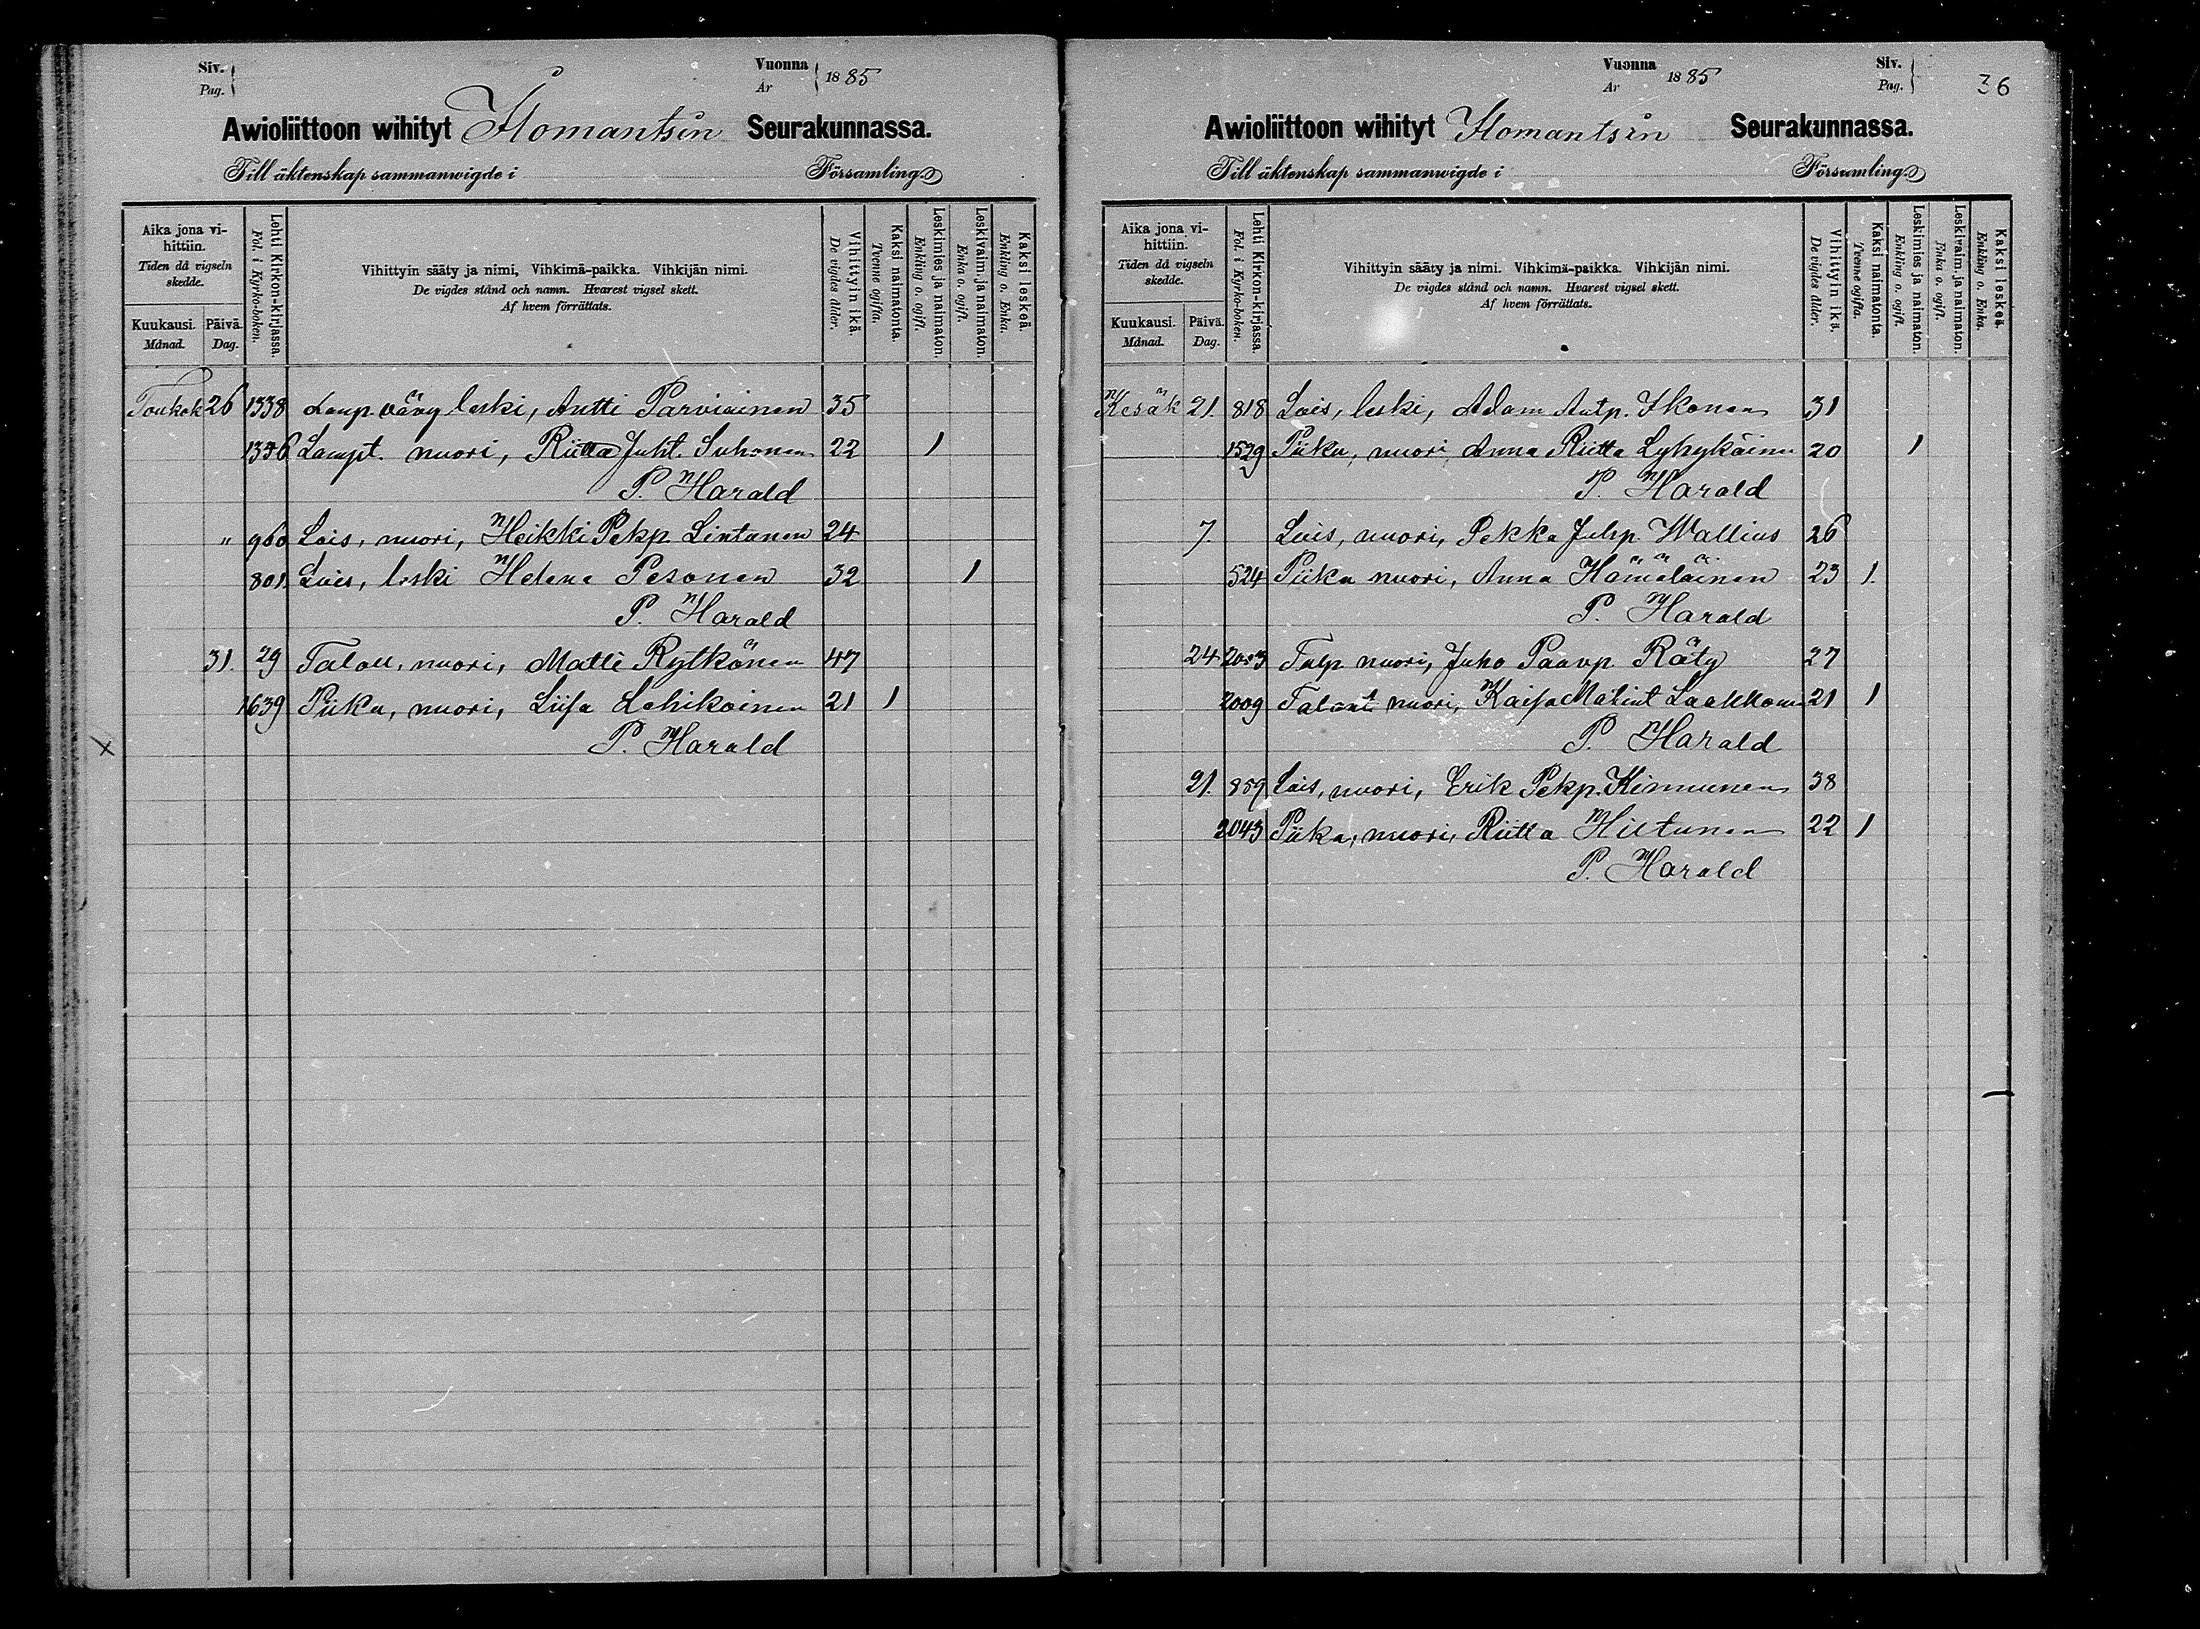 Siv.
Pag.
Vuonna
År
1885
Awioliittoon wihityt Ilomantsin Seurakunnassa.
Till äktenskap sammanwigde i Församling.
Aika jona vihittiin.
Tiden då vigseln skedde.
Kuukausi.
Månad.
Päivä.
Dag.
Lehti Kirkon-kirjassa.
Fol. i Kyrko-boken.
Vihittyin sääty ja nimi, Vihkimä-paikka. Vihkijän nimi.
De vigdes stånd och namn. Hvarest vigsel skett.
Af hvem förrättats.
Vihittyin ikä.
De vigdes ålder.
Kaksi naimatonta.
Tvenne ogifta.
Leskimies ja naimaton.
Enkling o. ogift.
Leskivaim. ja naimaton.
Enka o. ogift.
Kaksi leskeä.
Enkling o. Enka.
Toukok 26 1338 Lamp. vävy leski, Antti Parviainen 35
1336 Lampt. nuori, Riitta Juht. Suhonen 22 1
P. Harald
" 960 Lois, nuori, Heikki Pekp Lintunen 24
801. Lois, leski Helena Pesonen 32 1
P. Harald
31. 29 Talou, nuori, Matti Rytkönen 47
1639 Piika, nuori, Liisa Lehikoinen 21 1
P. Harald
Vuonna
År
1885
Siv.
Pag.
36
Awioliittoon wihityt Ilomantsin Seurakunnassa.
Till äktenskap sammanwigde i Församling.
Aika jona vihittiin.
Tiden då vigseln skedde.
Kuukausi.
Månad.
Päivä.
Dag.
Lehti Kirkon-kirjassa.
Fol. i Kyrko-boken.
Vihittyin sääty ja nimi. Vihkimä-paikka. Vihkijän nimi.
De vigdes stånd och namn. Hvarest vigsel skett.
Af hvem förrättats.
Vihittyin ikä.
De vigdes ålder.
Kaksi naimatonta.
Tvenne ogifta.
Leskimies ja naimaton.
Enkling o. ogift.
Leskivaim. ja naimaton.
Enka o. ogift.
Kaksi leskeä.
Enkling o. Enka.
Kesäk 21. 818 Lois, leski, Adam Antp. Ikonen 31
1529 Piika, nuori, Anna Riitta Lyhykäinen 20 1
P. Harald
7. Lois, nuori, Pekka Juhp. Wallius 26
524 Piika nuori, Anna Hämäläinen 23 1.
P. Harald
24 2053 Talp nuori, Juho Paavp. Räty 27
2009 Talont nuori, Kaisa Matint Laakkonen 21 1
P. Harald
21. 859 Lois, nuori, Erik Pekp. Kinnunen 38
2043 Piika, nuori, Riitta Hiltunen 22 1
P. Harald